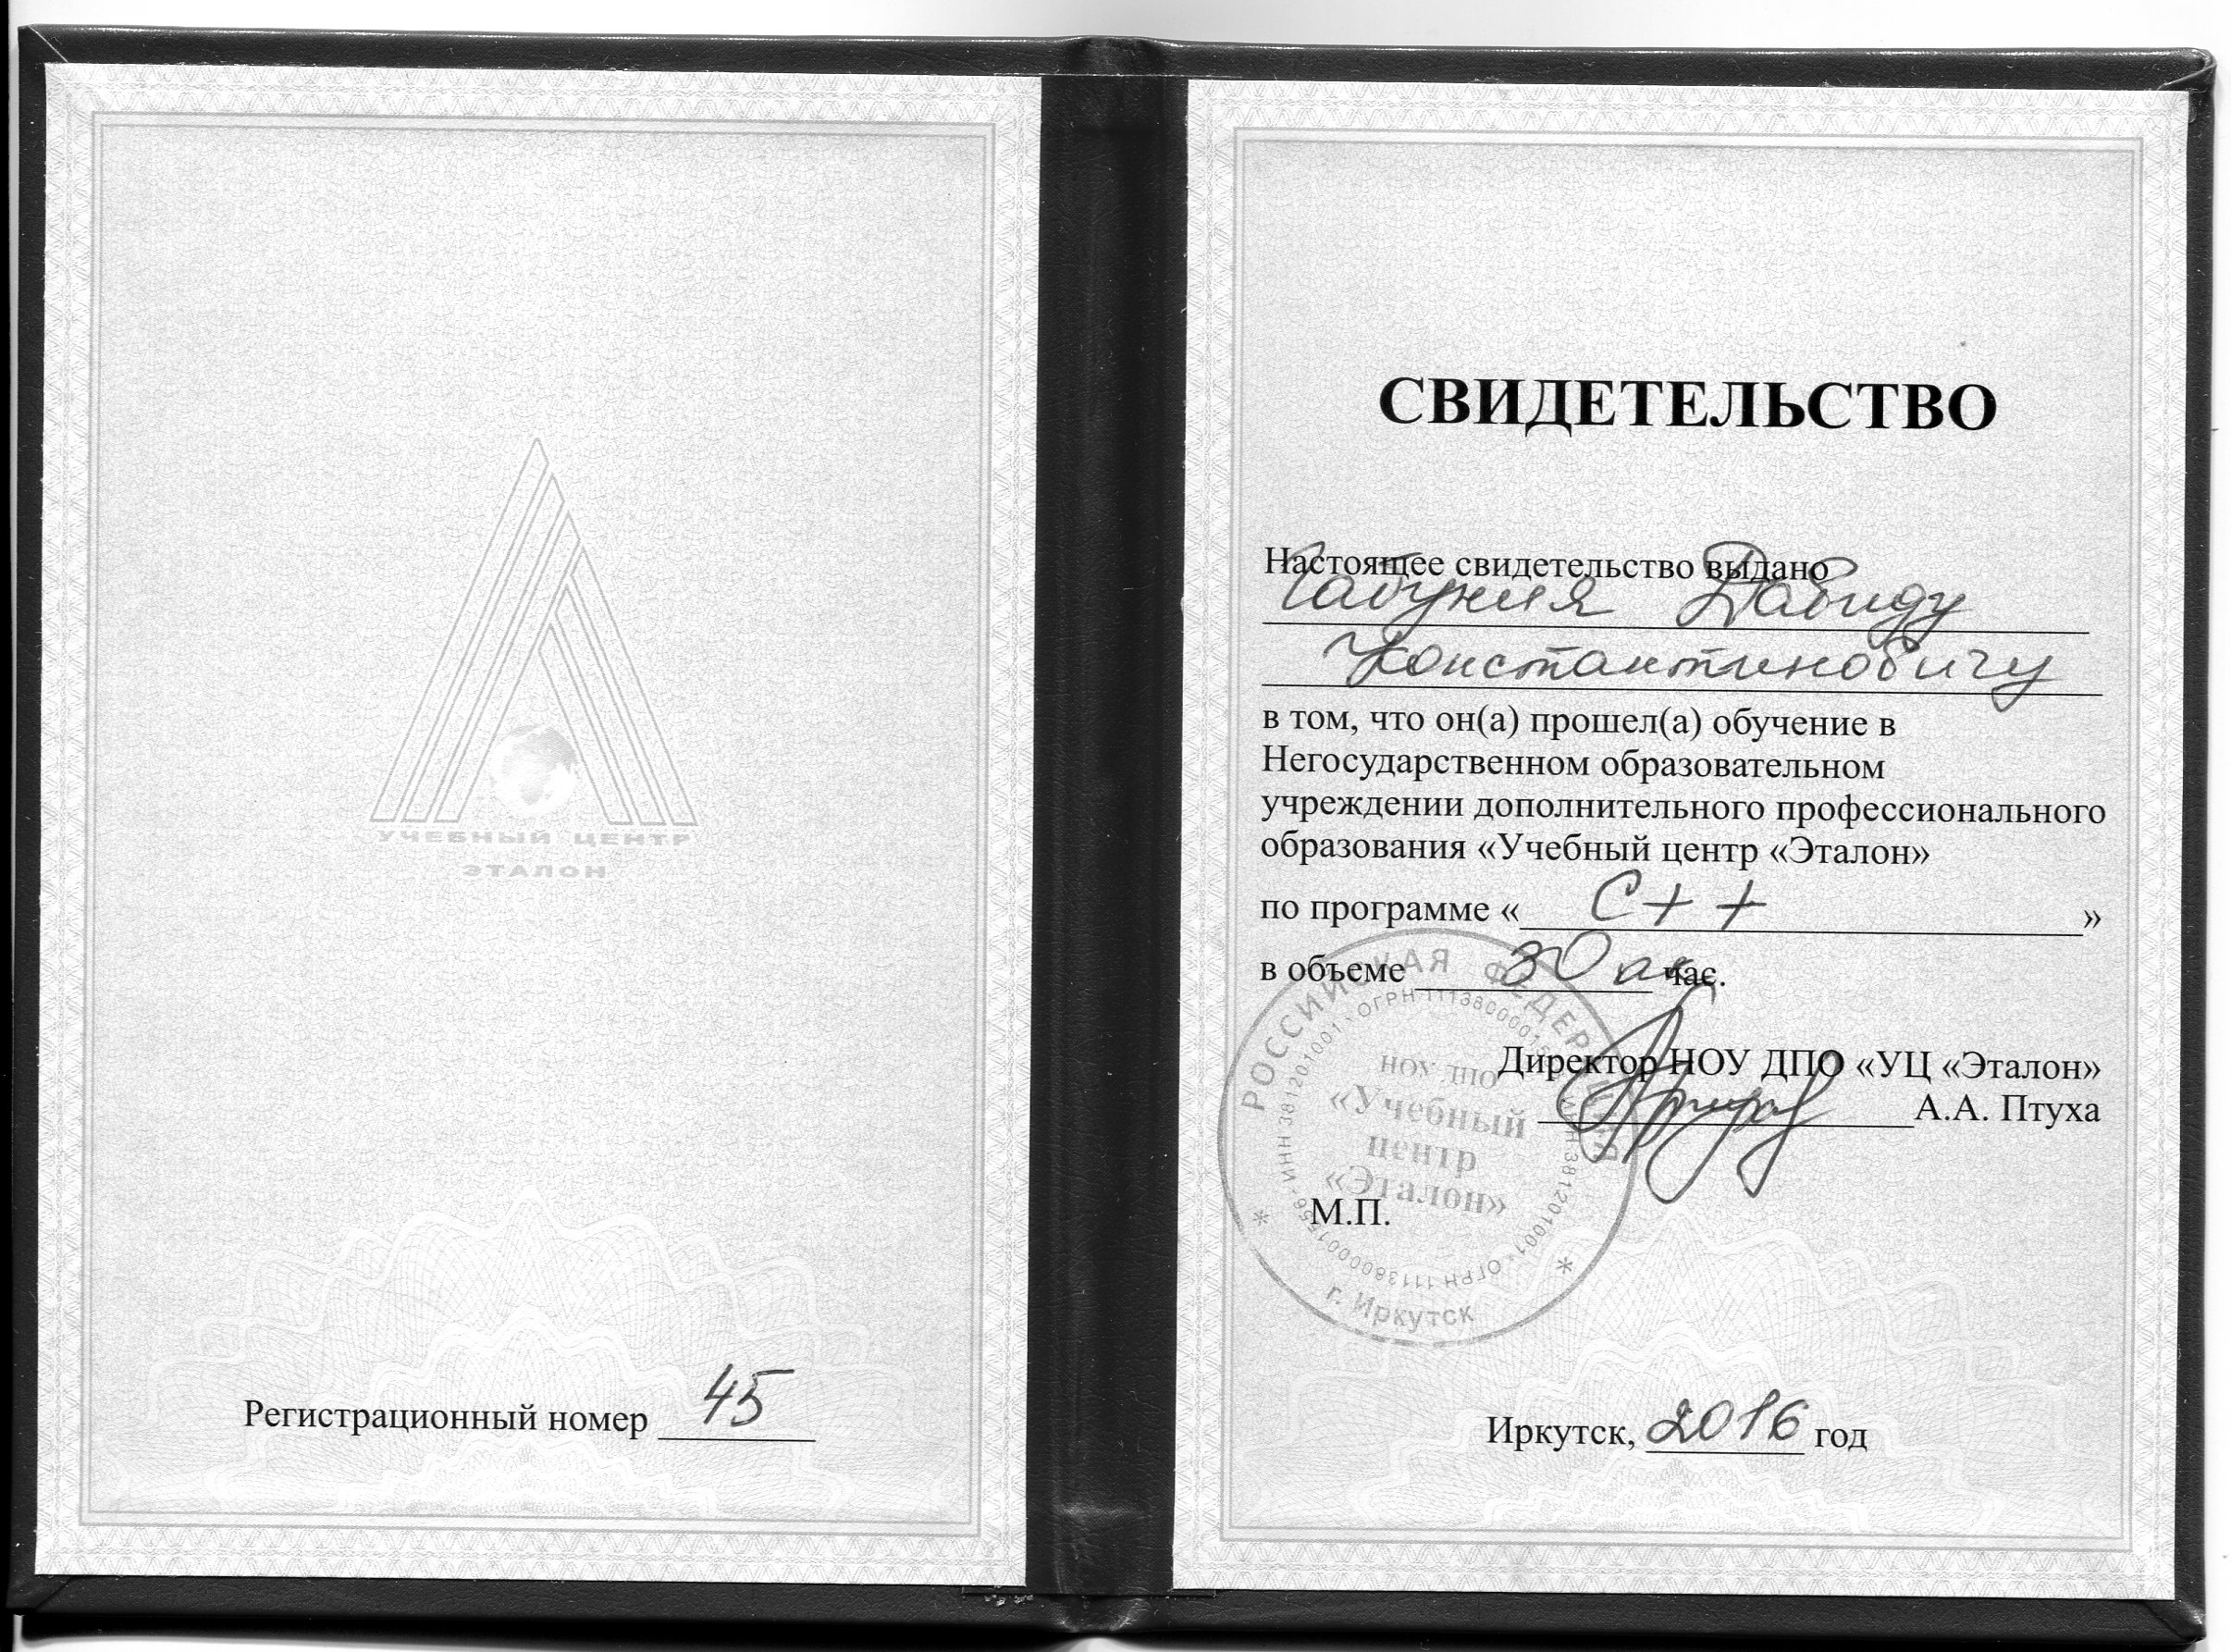 УЧЕБНЫЙ ЦЕНТР
ЭТАЛОН
Регистрационный номер 45
СВИДЕТЕЛЬСТВО
Настоящее свидетельство выдано
Габуния Давиду
Константиновичу
в том, что он(а) прошел(а) обучение в
Негосударственном образовательном
учреждении дополнительного профессионального
образования «Учебный центр «Эталон»
по программе « С++ »
в объеме 30 ак час.
Директор НОУ ДПО «УЦ «Эталон»
А.А. Птуха
М.П.
РОССИЙСКАЯ ФЕДЕРАЦИЯ
НОУ ДПО
«Учебный
центр
«Эталон»
г. Иркутск
Иркутск, 2016 год